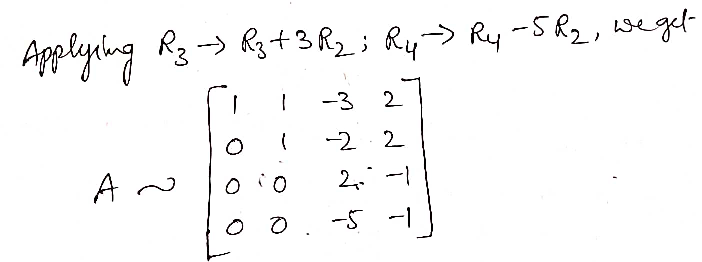 Applying R3 → R3+3R2; R4 → R4-5R2, we get-
1 1 -3 2
0 1 -2 2
A ~
0 0 2 -1
0 0 -5 -1